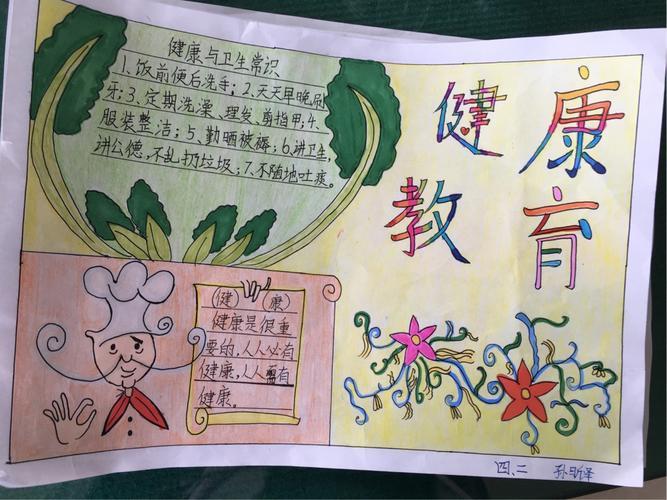 健康与卫生常识
1、饭前便后洗手；2、天天早晚刷
牙；3、定期洗澡、理发、剪指甲；4、
服装整洁；5、勤晒被褥；6、讲卫生，
讲公德，不乱扔垃圾；7、不随地吐痰。
健康
教育
(健) (康)
健康是很重
要的，人人必有
健康，人人有
健康。
四、二 孙昕泽